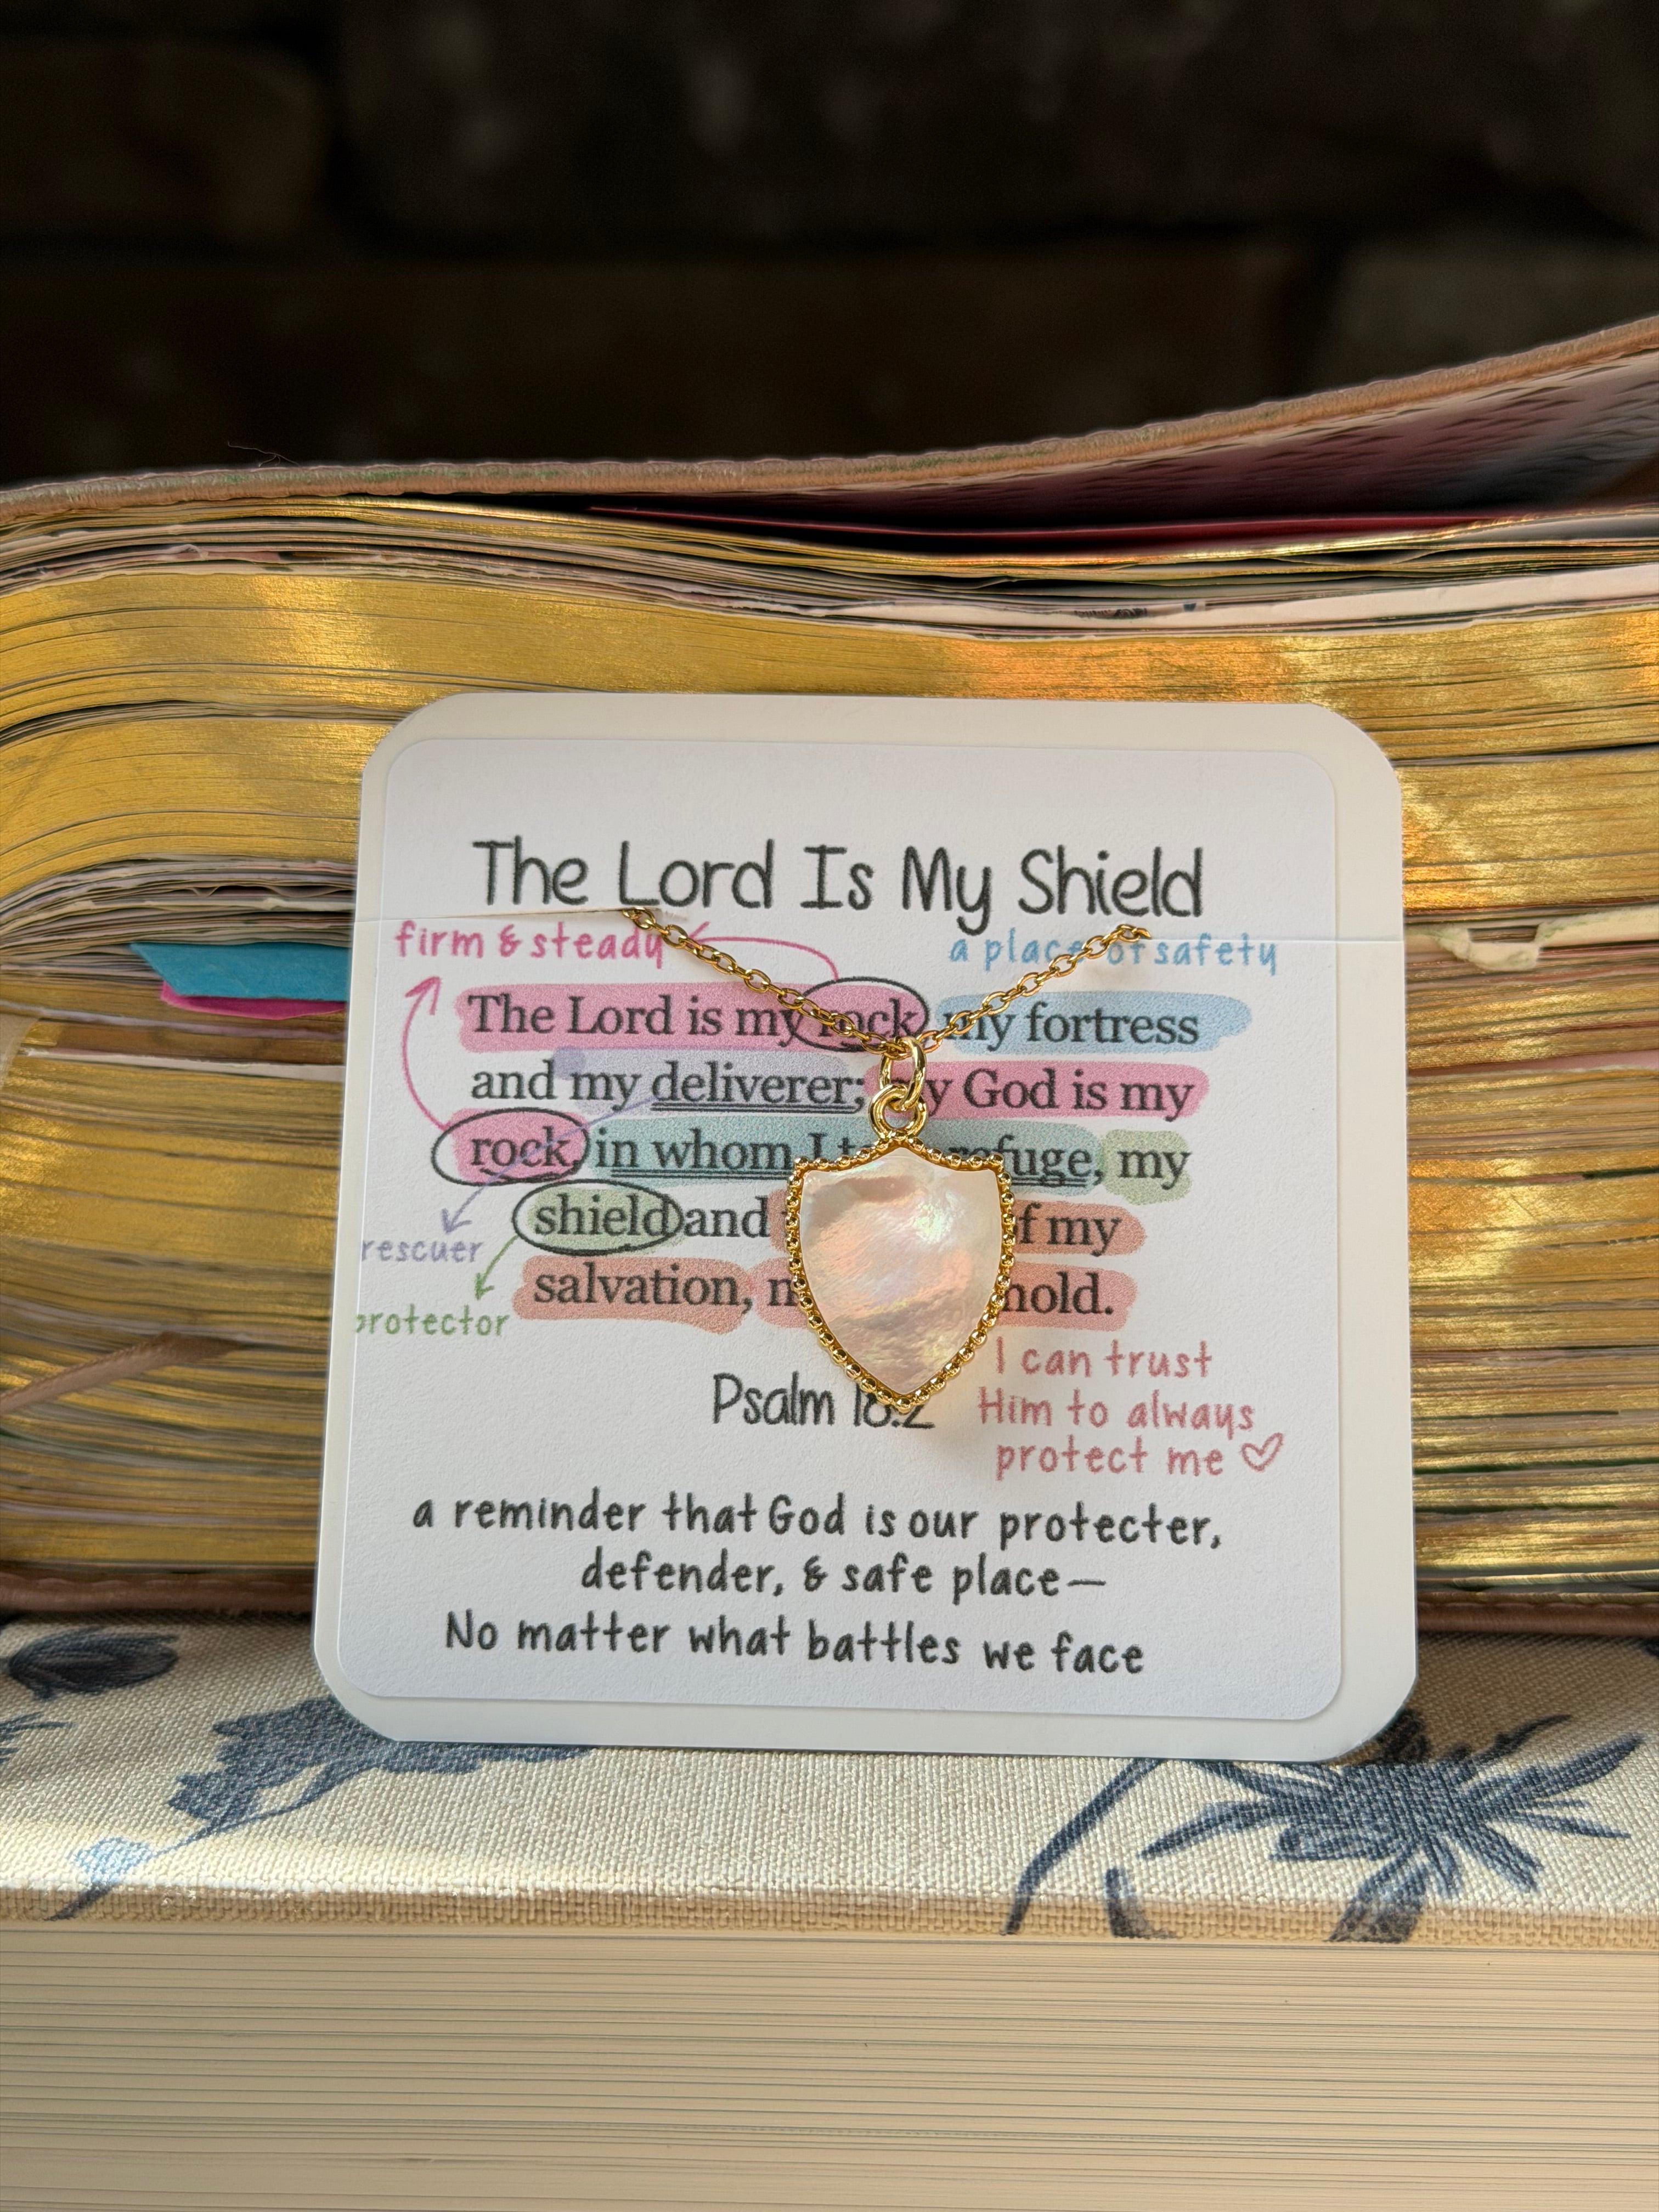 The Lord Is My Shield
firm & steady
a place of safety
The Lord is my rock, my fortress
and my deliverer; my God is my
rock, in whom I refuge, my
shield and of my
salvation, hold.
rescuer
protector
Psalm 18:2
I can trust
Him to always
protect me
a reminder that God is our protecter,
defender, & safe place—
No matter what battles we face